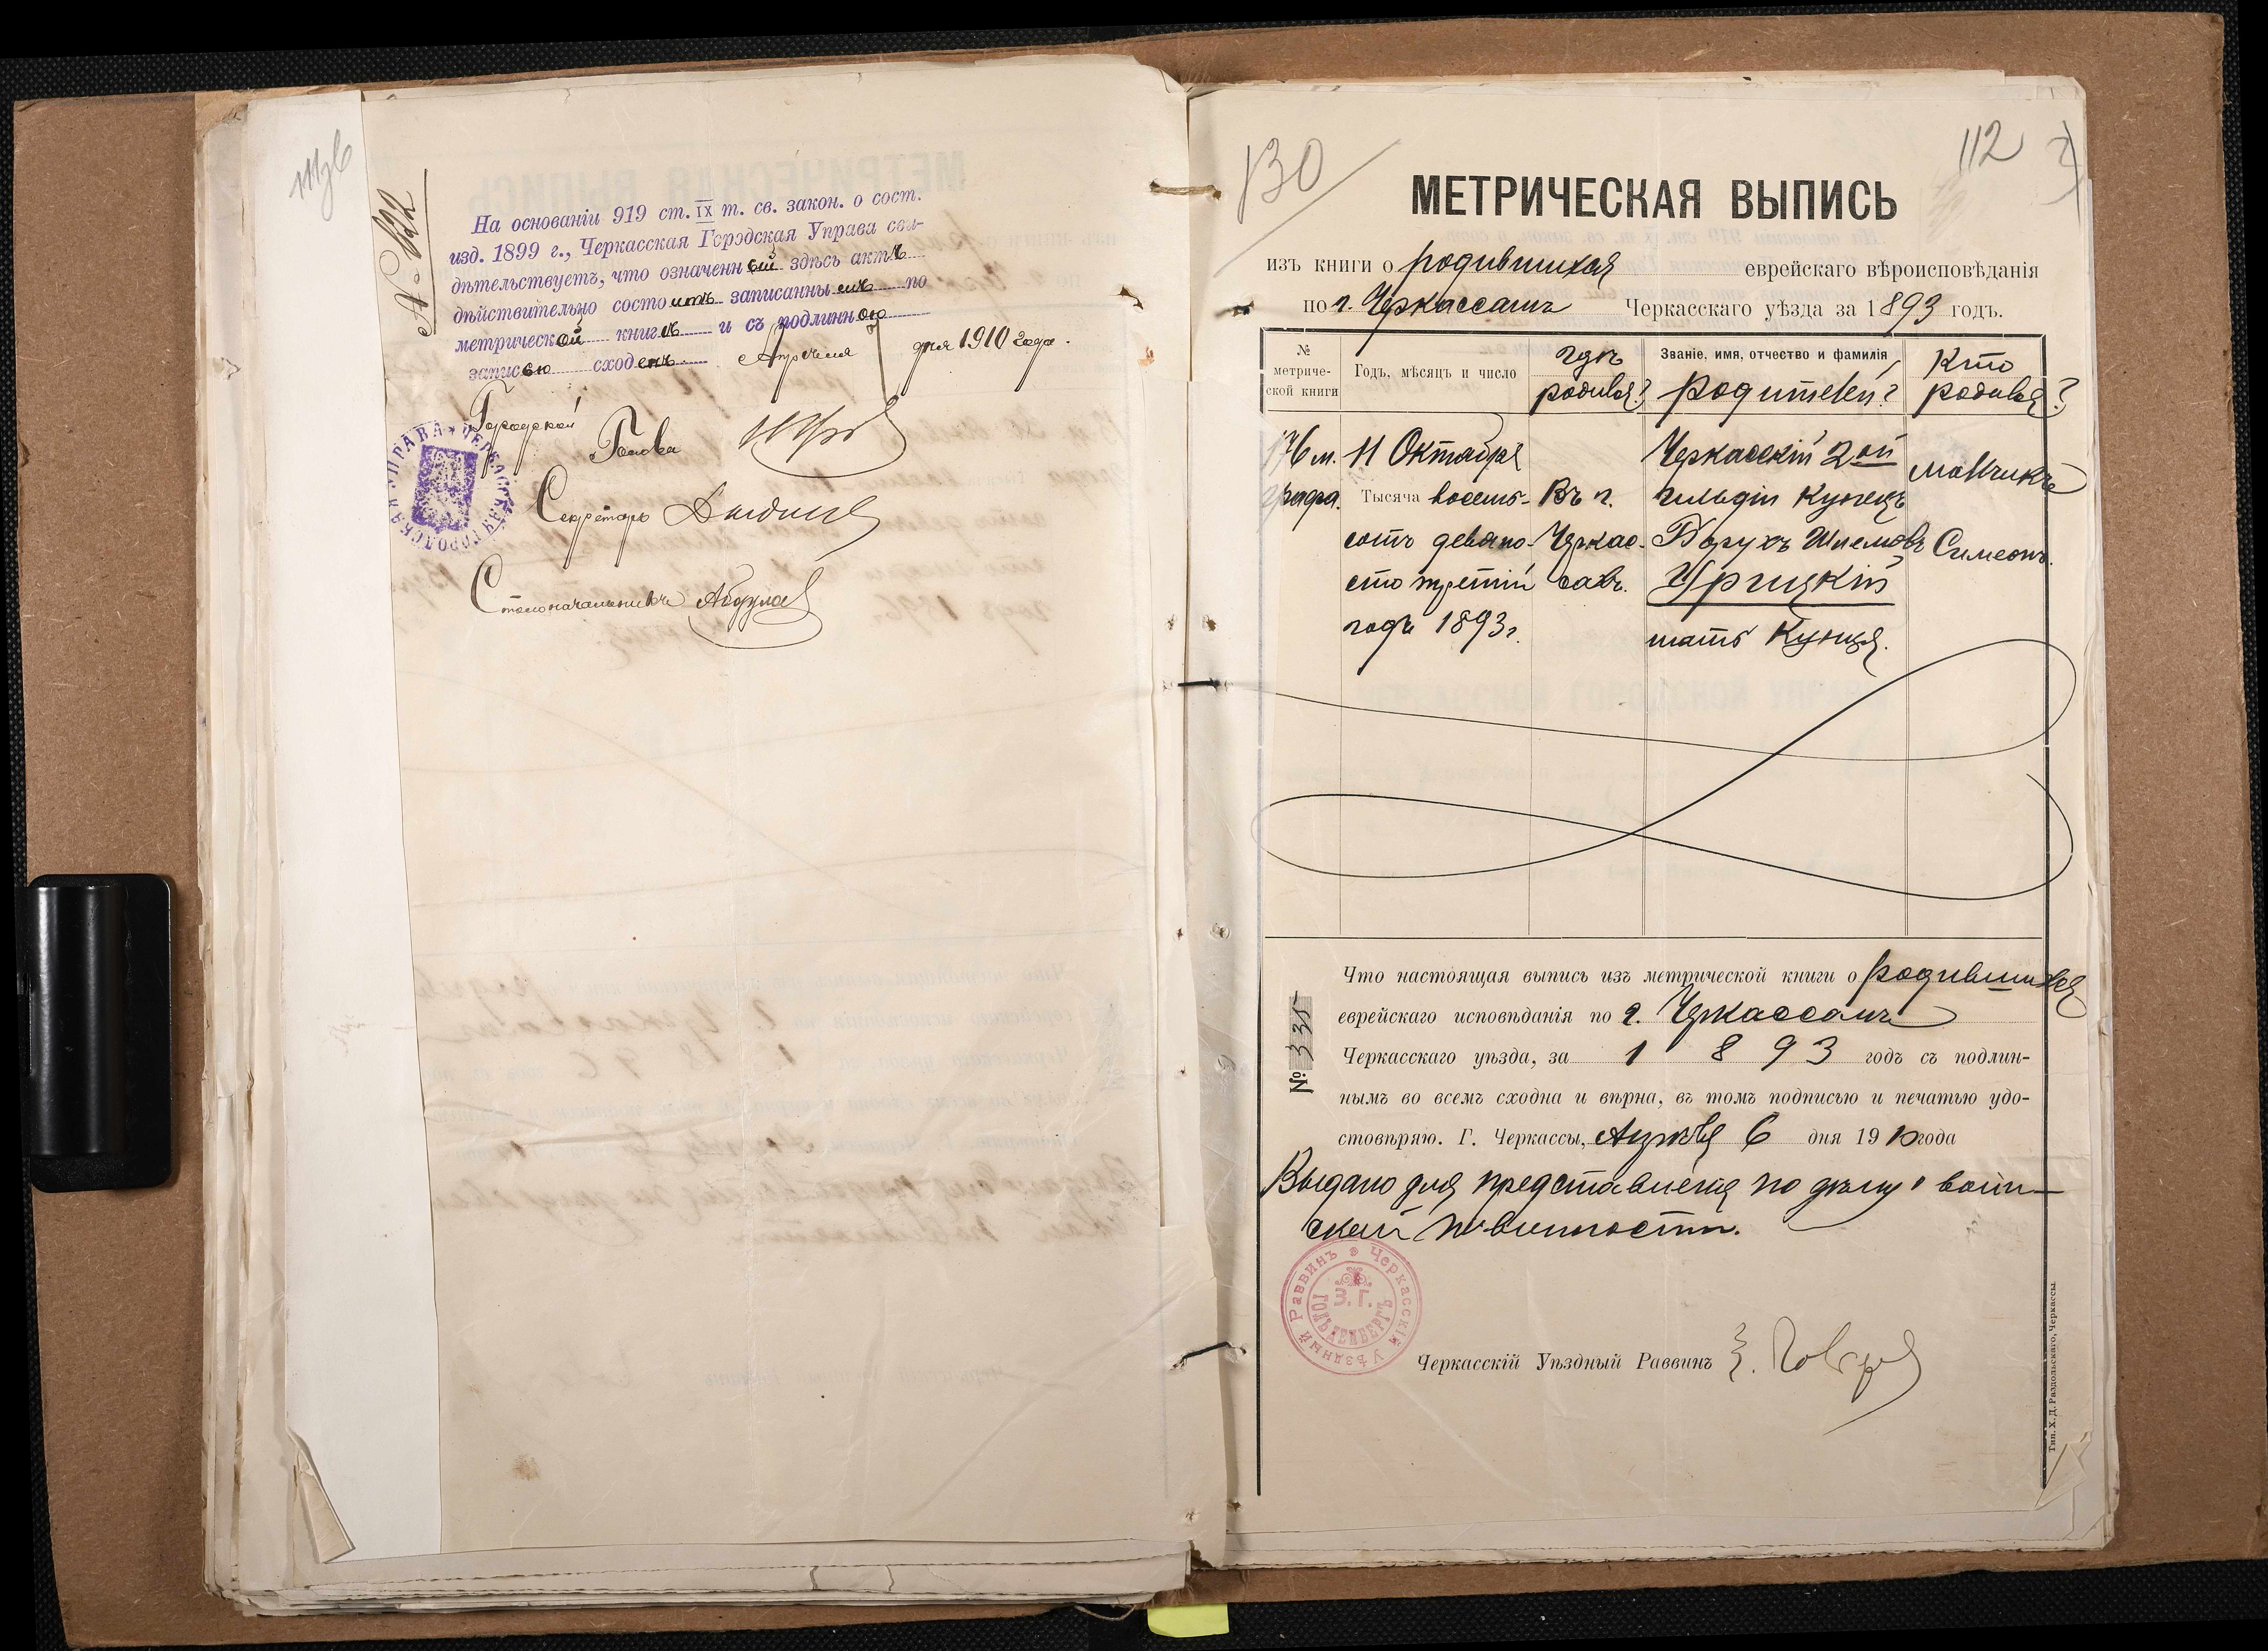 На основаніи 919 ст. IX т. св. закон. о сост.
изд. 1899 г., Черкасская Городская Управа сви-
дѣтельствуетъ, что означенный здѣсь актъ
дѣйствительно состоитъ записаннымъ по
метрической книгѣ и съ подлинною
записью сходенъ. Апрѣля 7 дня 1910 года.
Городской
Голова
Секретарь
Столоначальникъ
130
112
МЕТРИЧЕСКАЯ ВЫПИСЬ
изъ книги о родившихся еврейскаго вѣроисповѣданія
по г. Черкассамъ Черкасскаго уѣзда за 1893 годъ.
№ метриче-ской книги
Годъ, мѣсяцъ и число
гдѣ родился?
Званіе, имя, отчество и фамилія родителей?
Кто родился?
176 м. графа.
11 Октября
Тысяча восемь-
сотъ девяно-
сто третій
годъ 1893 г.
Въ г.
Черкас-
сахъ.
Черкасскій 2ой
гильдіи купецъ
Борухъ Шлемовъ
Урицкій
мать Кунця.
мальчикъ
Симеонъ.
Что настоящая выпись изъ метрической книги о родившихся
еврейскаго исповѣданія по г. Черкассамъ
Черкасскаго уѣзда, за 1893 годъ съ подлин-
нымъ во всемъ сходна и вѣрна, въ томъ подписью и печатью удо-
стовѣряю. Г. Черкассы, Апрѣля 6 дня 1910 года
№ 335
Выдано для представленія по дѣлу о воин-
ской повинности.
Черкасскій Уѣздный Раввинъ
З. Г.
Черкасскій Уѣздный Раввинъ
Тип. Х. Д. Раздольскаго, Черкассы.